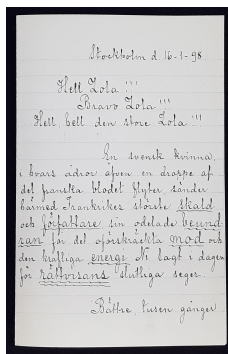 Stockholm d. 16-1-98
Hell Zola!!!
Bravo Zola!!!
Hell, hell den store Zola!!!
En svensk kvinna,
i hvars ådror äfven en droppe af
det franska blodet flyter, sänder
härmed Frankrikes störste skald
och författare sin odelade beund
ran för det oförskräckta mod och
den kraftiga energi Ni lagt i dagen
för rättvisans slutliga seger.
Bättre, tusen gånger